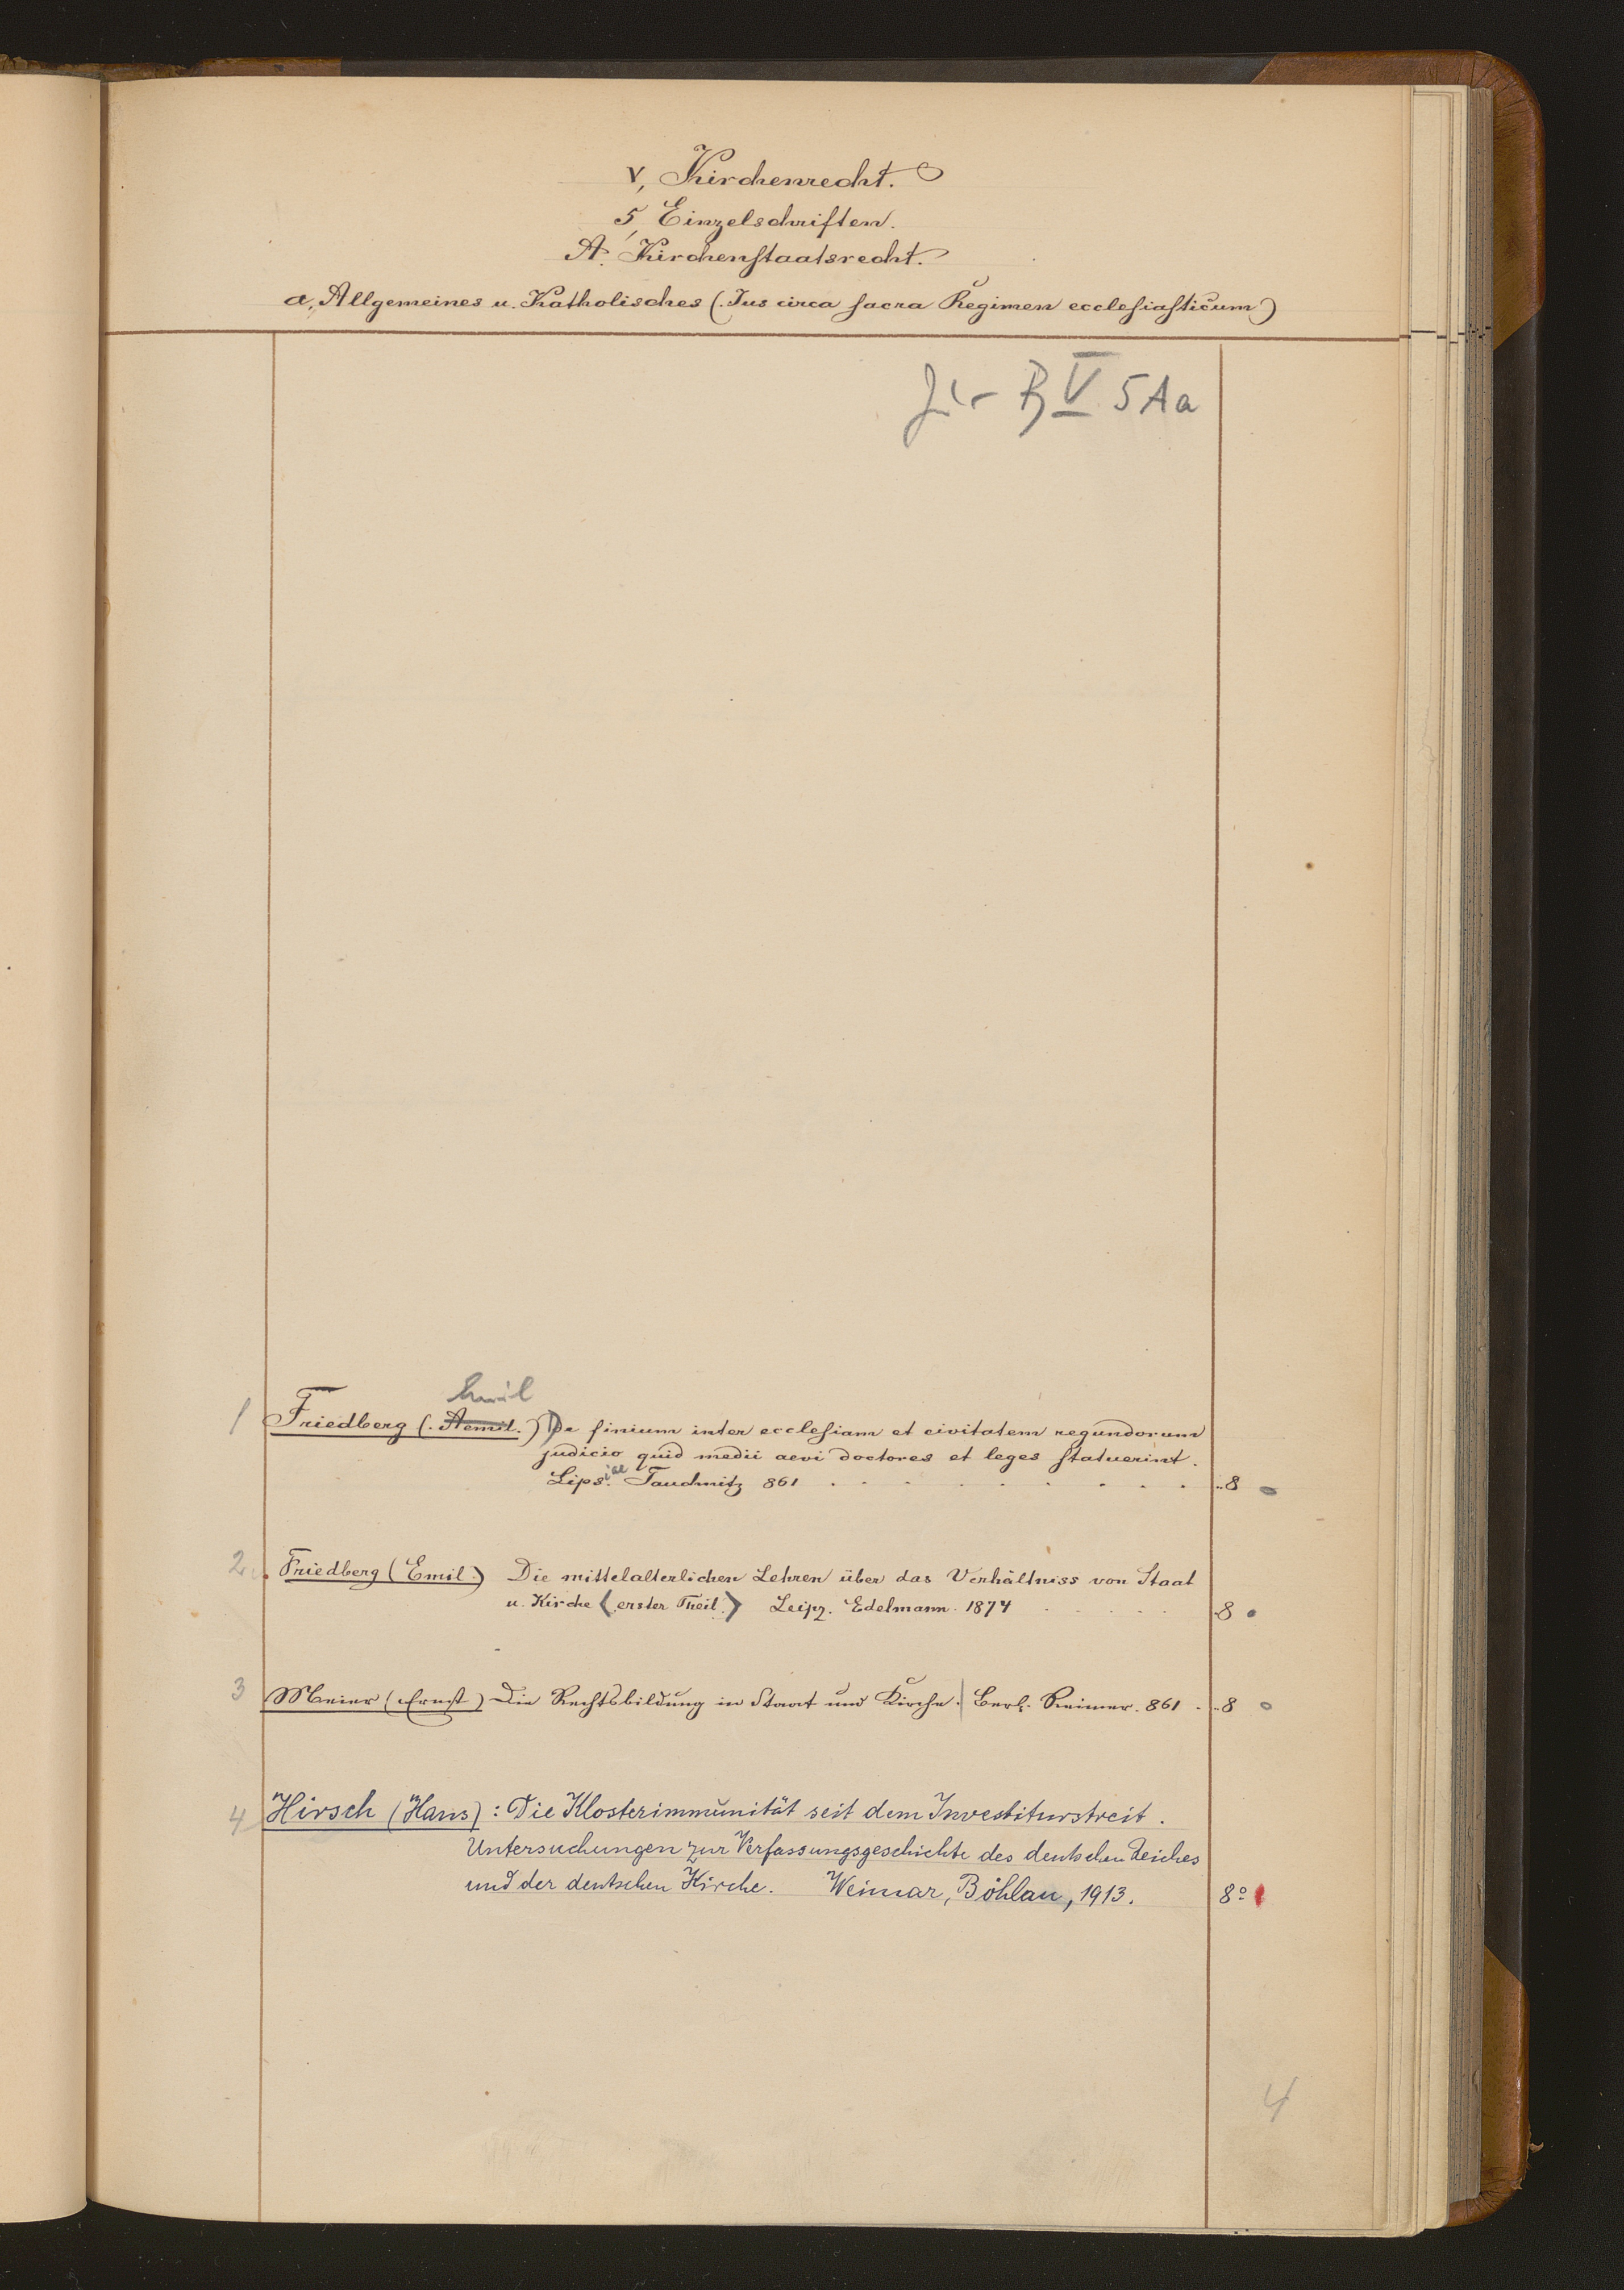 V, Kirchenrecht.
5, Einzelschriften.
A. Kirchenstaatsrecht.
a, Allgemeines u. Katholisches (Jus circa sacra Regimen ecclesiasticum)
Jur B V 5 A a
Emil
1 Friedberg (Aemil.) De finium inter ecclesiam et civitatem regundorum
judicio quid medii aevi doctores et leges statuerint.
Lipsiae Tauchnitz 861 . . . . . . . . . 8
2 Friedberg (Emil.) Die mittelalterlichen Lehren über das Verhältniss von Staat
u. Kirche (erster Theil.) Leipz. Edelmann. 1874 . . . . . 8
3 Meier (Ernst) Die Rechtsbildung in Staat und Kirche. Berl. Reimer. 861 . 8
4 Hirsch (Hans): Die Klosterimmunität seit dem Investiturstreit.
Untersuchungen zur Verfassungsgeschichte des deutschen Reiches
und der deutschen Kirche. Weimar, Böhlau, 1913. 8°
4